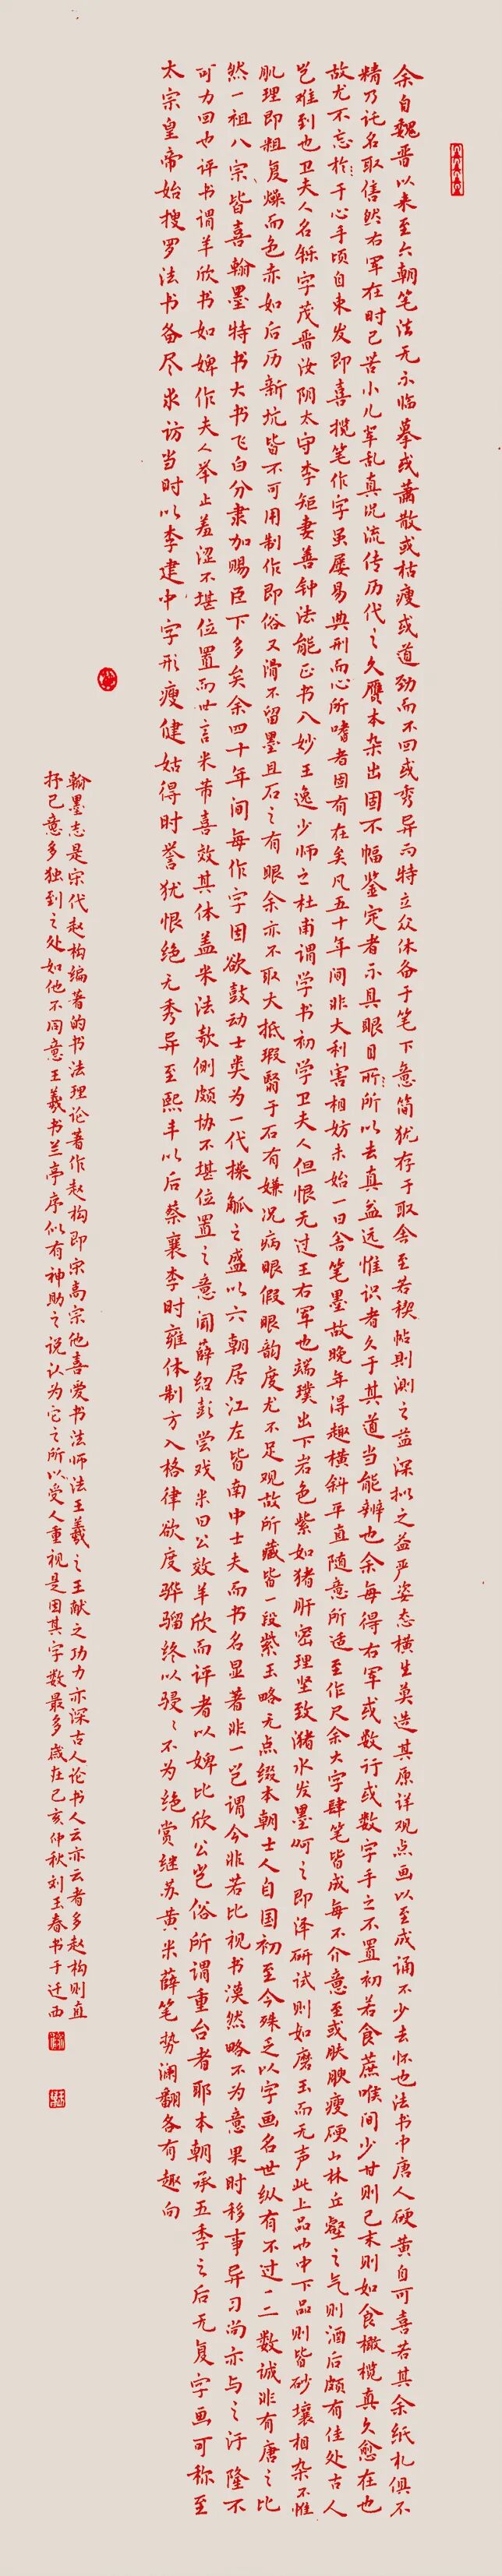 余自魏晋以来至六朝笔法无不临摹或萧散或枯瘦或遒劲而不回或秀异而特立众体备于笔下意简犹存于取舍至若禊帖则测之益深拟之益严姿态横生莫造其原详观点画以至成诵不少去怀也法书中唐人硬黄自可喜若其余纸札俱不
精乃托名取信然右军在时已苦小儿辈乱真况流传历代之久赝本杂出固不幅鉴定者不具眼目所所以去真益远惟识者久于其道当能辨也余每得右军或数行或数字手之不置初若食蔗喉间少甘则已末则如食橄榄真久愈在也
故尤不忘于心手顷自束发即喜揽笔作字虽屡易典刑而心所嗜者固有在矣凡五十年间非大利害相妨未始一日舍笔墨故晚年得趣横斜平直随意所适至作尺余大字肆笔皆成每不介意至或肤腴瘦硬山林丘壑之气则酒后颇有佳处古人
岂难到也卫夫人名铄字茂晋汝阴太守李矩妻善钟法能正书入妙王逸少师之杜甫谓学书初学卫夫人但恨无过王右军也端璞出下岩色紫如猪肝密理坚致潴水发墨呵之即泽研试则如磨玉而无声此上品也中下品则皆砂壤相杂不惟
肌理即粗复燥而色赤如后历新坑皆不可用制作即俗又滑不留墨且石之有眼余亦不取大抵瑕翳于石有嫌况病眼假眼韵度尤不足观故所藏皆一段紫玉略无点缀本朝士人自国初至今殊乏以字画名世纵有不过一二数诚非有唐之比
然一祖八宗皆喜翰墨特书大书飞白分隶加赐臣下多矣余四十年间每作字因欲鼓动士类为一代操觚之盛以六朝居江左皆南中士夫而书名显著非一岂谓今非若比视书漠然略不为意果时移事异习尚亦与之汙隆不
可力回也评书谓羊欣书如婢作夫人举止羞涩不堪位置而世言米芾喜效其体盖米法欹侧颇协不堪位置之意闻薛绍彭尝戏米曰公效羊欣而评者以婢比欣公岂俗所谓重台者耶本朝承五季之后无复字画可称至
太宗皇帝始搜罗法书备尽求访当时以李建中字形瘦健姑得时誉犹恨绝无秀异至熙丰以后蔡襄李时雍体制方入格律欲度骅骝终以骎骎不为绝赏继苏黄米薛笔势澜翻各有趣向
翰墨志是宋代赵构编著的书法理论著作赵构即宋高宗他喜爱书法师法王羲之王献之功力亦深古人论书人云亦云者多赵构则直
抒己意多独到之处如他不同意王羲书兰亭序似有神助之说认为它之所以受人重视是因其字数最多岁在己亥仲秋刘玉春书于迁西